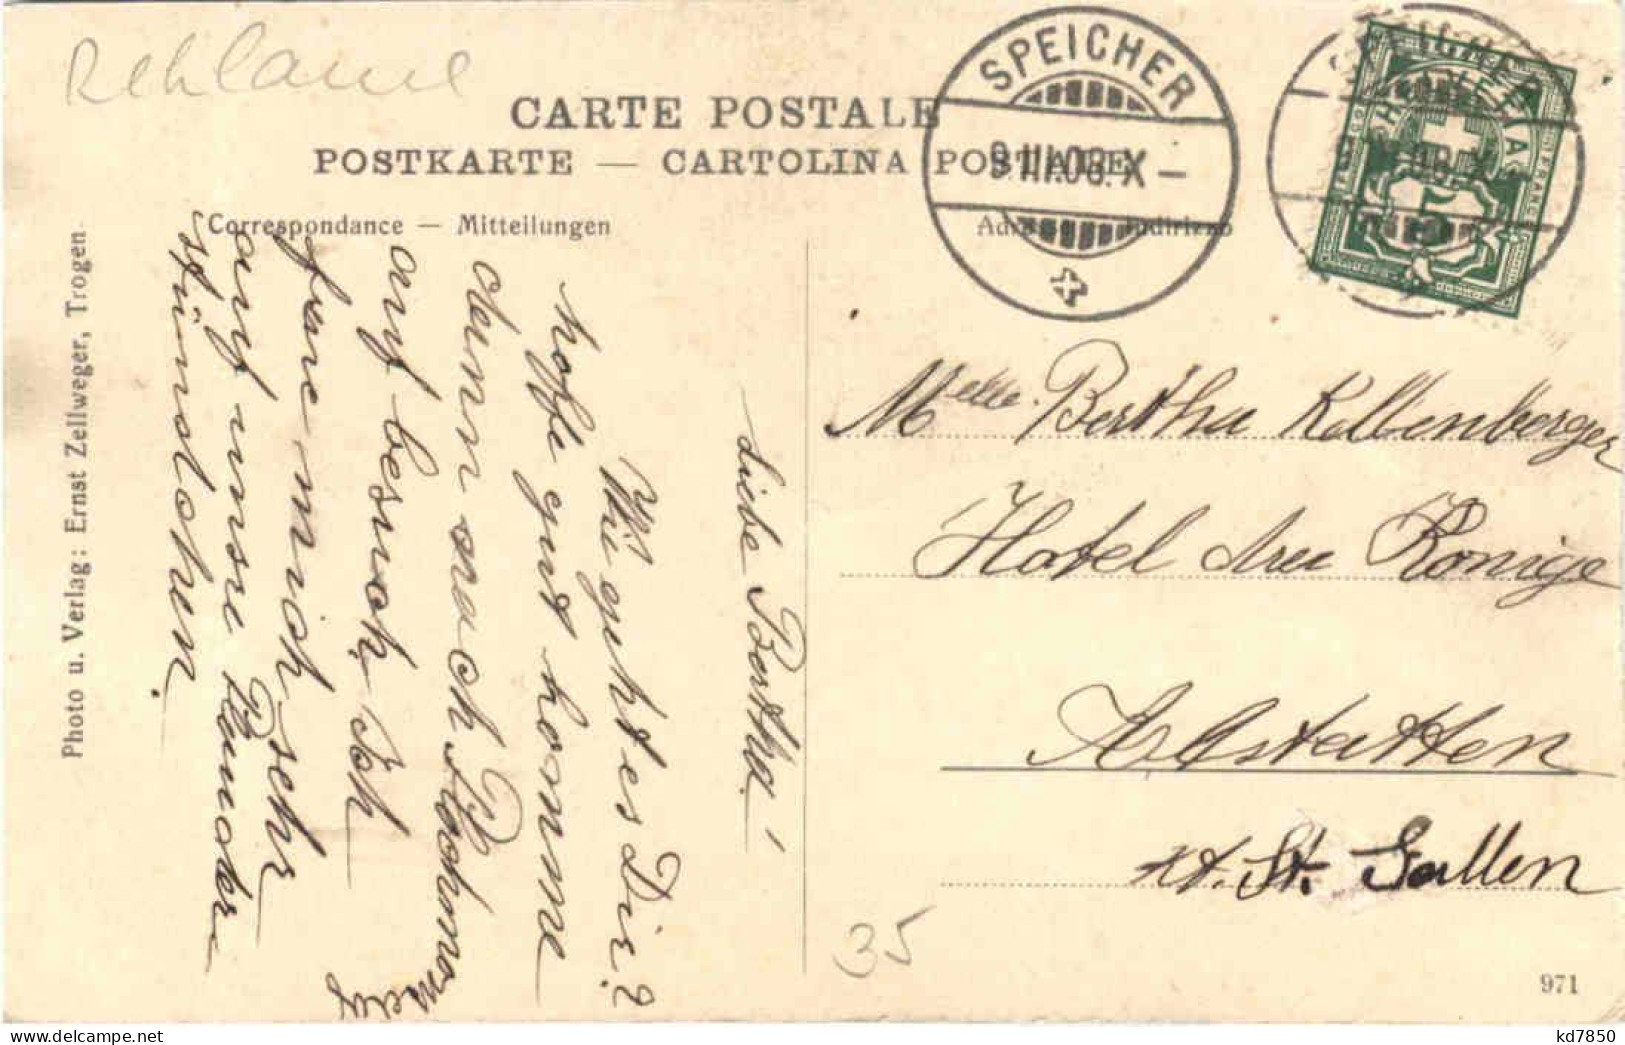 Reklame
CARTE POSTALE
POSTKARTE — CARTOLINA POSTALE
Correspondance — Mitteilungen
SPEICHER
9.III.08.X –
5
FRANCO
Photo u. Verlag: Ernst Zellweger, Trogen
Liebe Bertha!
Wie geht es Dir?
hoffe gut komme
dann nach
auf besuch, Ich
freue mich sehr
auf unsre
stündchen.
Melle Bertha Kolbenberger
Hotel drei Könige
Altstatten
Kt. St. Gallen
35
971
kd7850